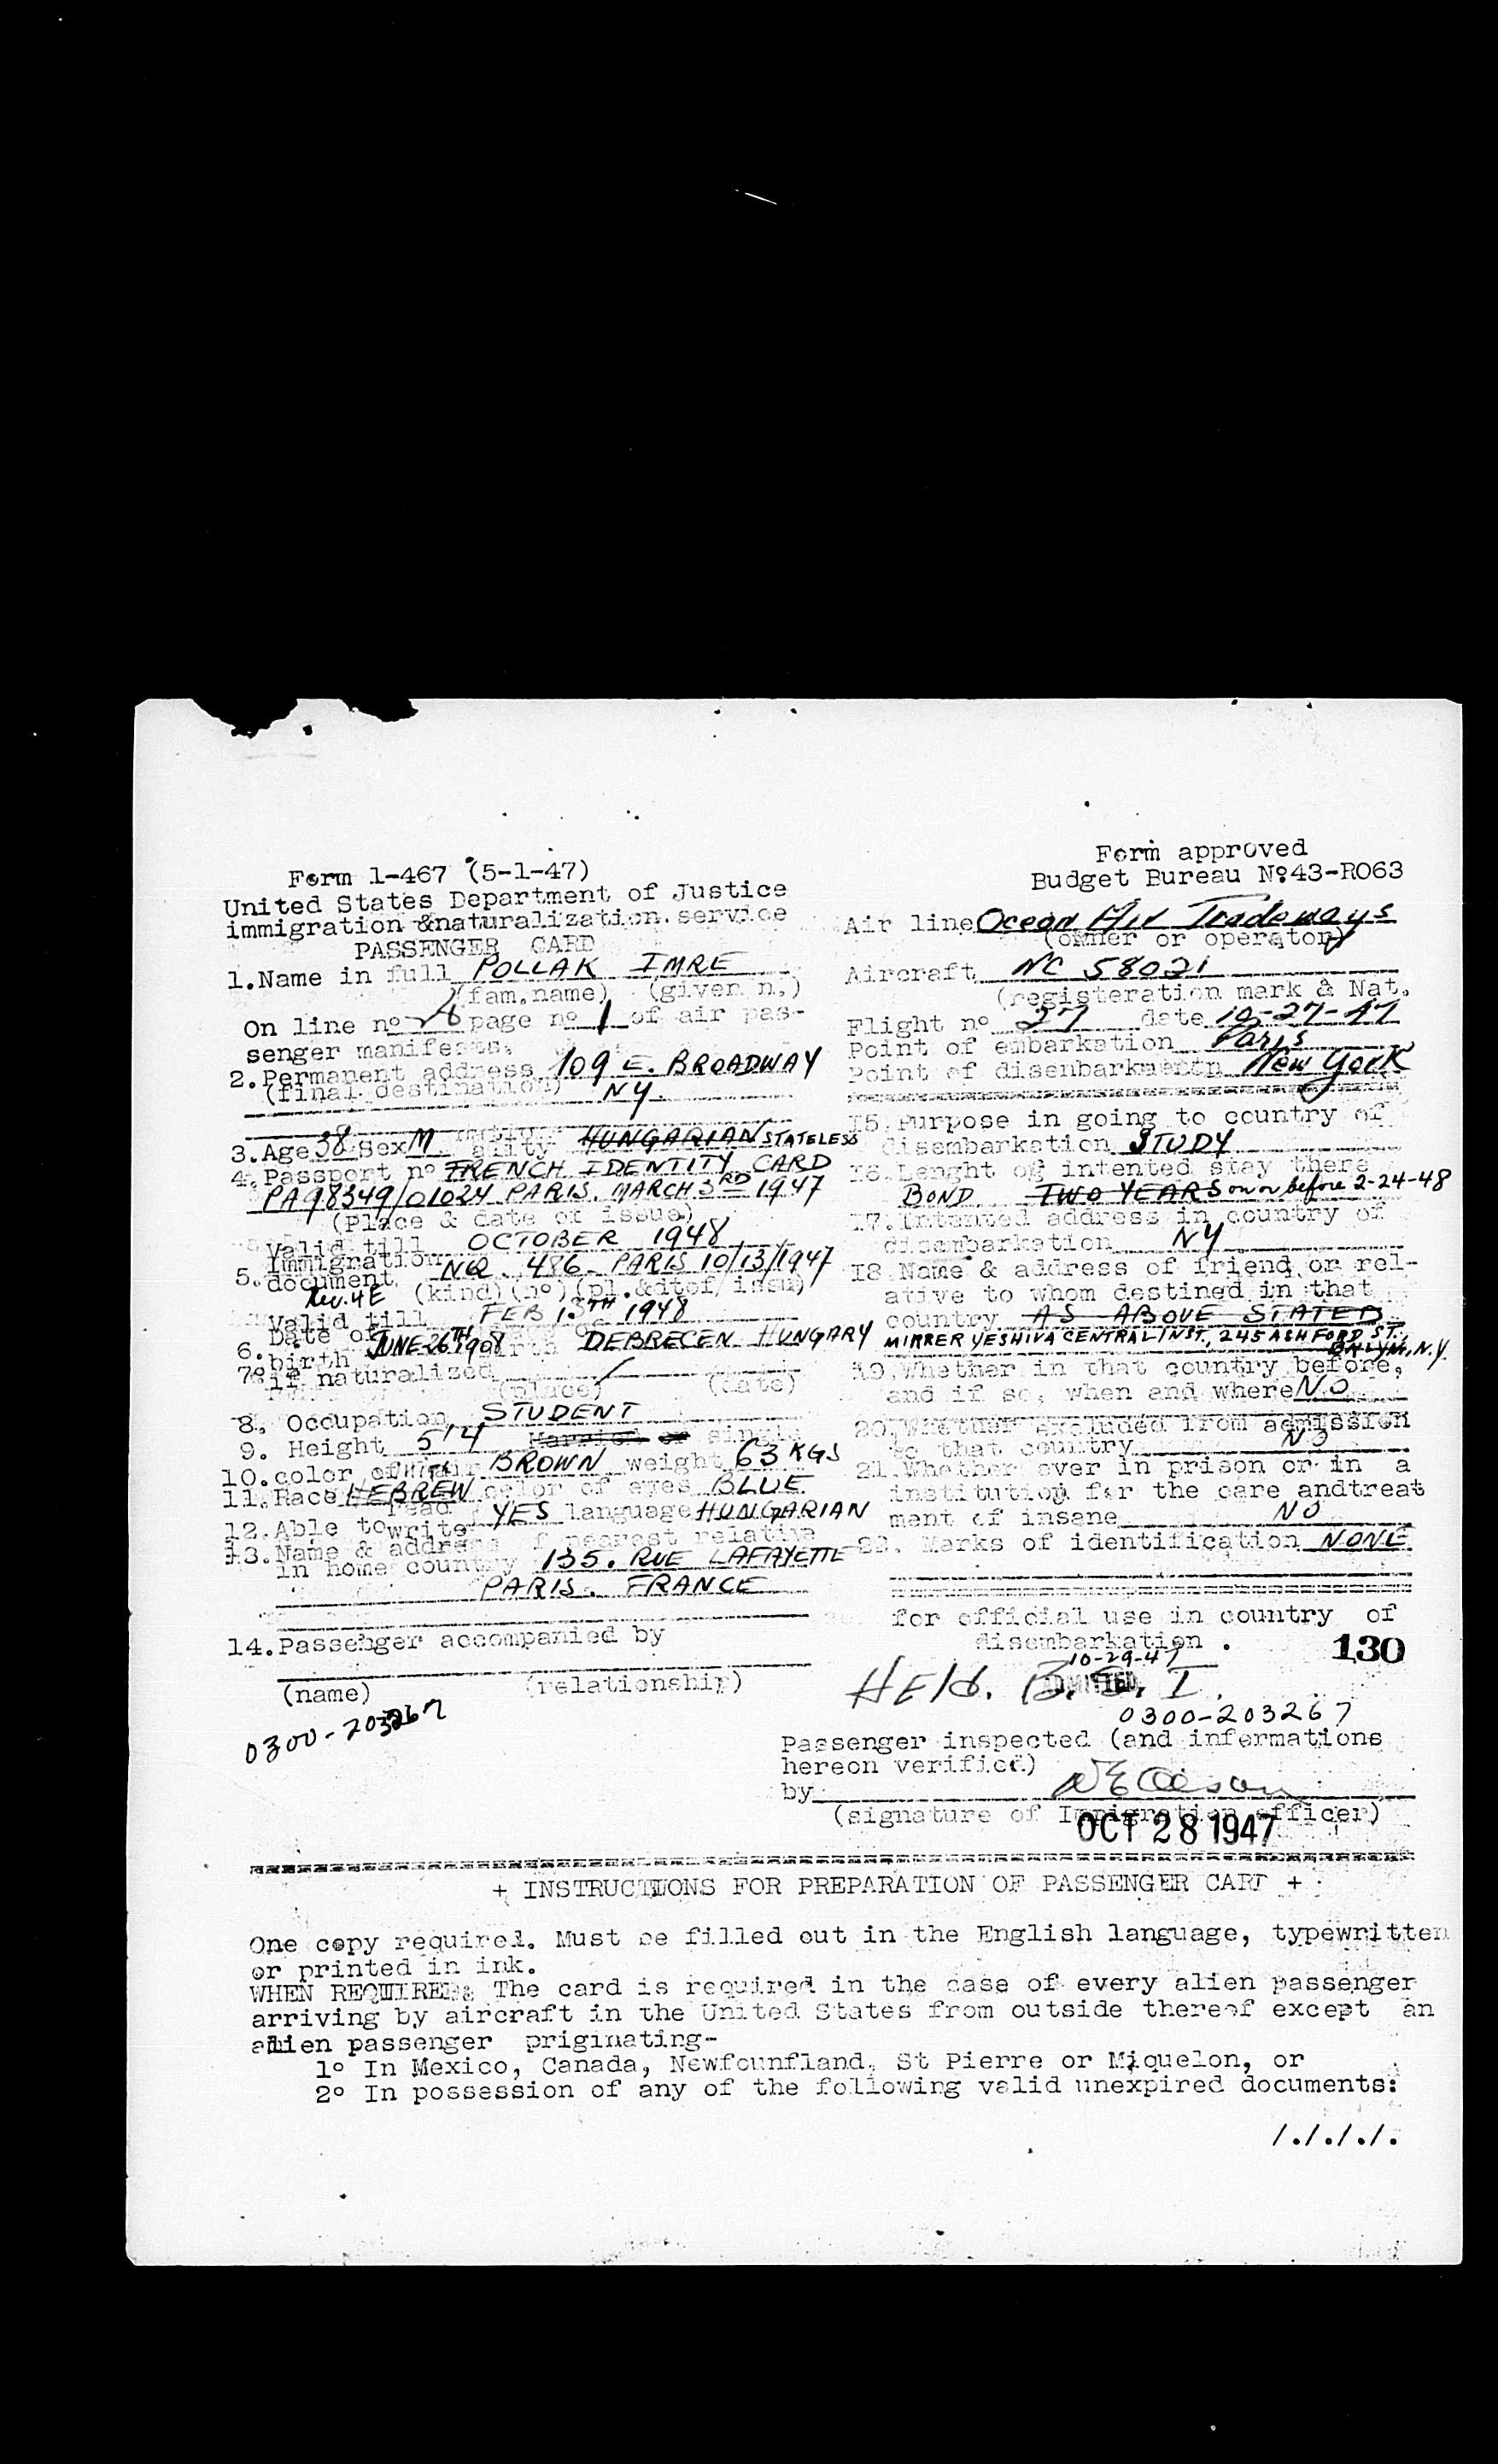 Form 1-467 (5-1-47)
United States Department of Justice
immigration &naturalization.service
PASSENGER CARD
1.Name in full POLLAK IMRE
(fam.name) (given n.)
On line nº page nº 1 of air pas-
senger manifests.
2.Permanent address 109 E. BROADWAY
(final destination) NY.
3.Age 38 Sex M ality HUNGARIAN STATELESS
4.Passport nº FRENCH IDENTITY CARD
PA98349/01024 PARIS. MARCH 3RD 1947
(Place & date of issue)
Valid till OCTOBER 1948
Immigration
5.document NQ. 486- PARIS 10/13/1947
Rev. 4E (kind)(nº)(pl.&dtof issu)
Valid till FEB 13TH 1948
6.Date of birth JUNE 26TH 1908 DEBRECEN HUNGARY
7º if naturalized /
(place) (date)
8. Occupation STUDENT
9. Height 5'4 Married or single
10.color of hair BROWN weight 63 KGS
11.Race HEBREW color of eyes BLUE
12.Able to read write YES language HUNGARIAN
13.Name & address of nearest relative
in home country 135. RUE LAFAYETTE
PARIS. FRANCE
14.Passenger accompanied by
(name) (relationship)
0300-203267
Form approved
Budget Bureau Nº43-R063
Air line Ocean Air Tradeways
(owner or operator)
Aircraft NC 58021
(registeration mark & Nat.
Flight nº 27 date 10-27-47
Point of embarkation Paris
Point of disembarkmentn New York
15.Purpose in going to country of
disembarkation STUDY
16.Lenght of intented stay there
BOND TWO YEARS on or before 2-24-48
17.Intented address in country of
disembarkation NY
18.Name & address of friend or rel-
ative to whom destined in that
country AS ABOVE STATED
MIRRER YESHIVA CENTRAL INST., 245 ASHFORD ST.,
BKLYN, N.Y.
19.Whether in that country before,
and if so, when and where NO
20.Whether excluded from admission
to that country NO
21.Whether ever in prison or in a
institution for the care andtreat
ment of insane NO
22. Marks of identification NONE
for official use in country of
disembarkation .
130
10-29-47
HEld. B. S. I.
ADMITTED
0300-203267
Passenger inspected (and informations
hereon verified)
by
(signature of Immigration officer)
OCT 28 1947
+ INSTRUCTIONS FOR PREPARATION OF PASSENGER CART +
One copy required. Must be filled out in the English language, typewritten
or printed in ink.
WHEN REQUIRED: The card is required in the case of every alien passenger
arriving by aircraft in the United States from outside thereof except an
alien passenger priginating-
1º In Mexico, Canada, Newfounfland, St Pierre or Miquelon, or
2º In possession of any of the following valid unexpired documents:
/././././.